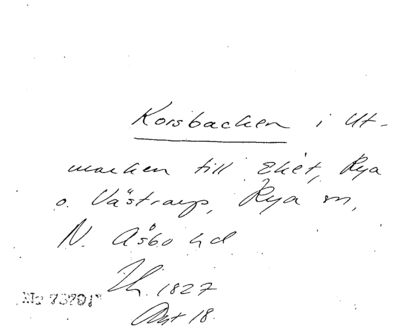 Korsbacken i Ut-
marken till Eket, Rya
o. Västraup, Rya sn,
N. Åsbo hd
1827
Akt 18.